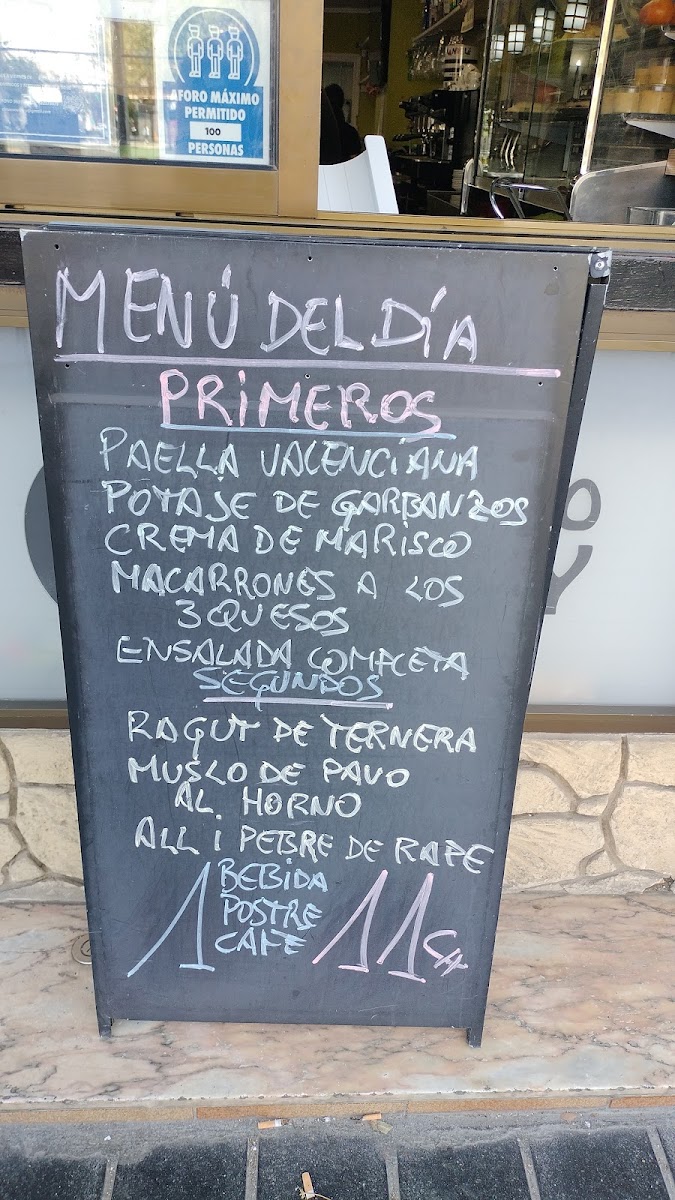 AFORO MÁXIMO
PERMITIDO
100
PERSONAS
MENÚ DEL DÍA
PRIMEROS
PAELLA VALENCIANA
POTAJE DE GARBANZOS
CREMA DE MARISCO
MACARRONES A LOS
3 QUESOS
ENSALADA COMPLETA
SEGUNDOS
RAGUT DE TERNERA
MUSLO DE PAVO
AL HORNO
ALL I PEBRE DE RAPE
1 BEBIDA
POSTRE
CAFE
11 €